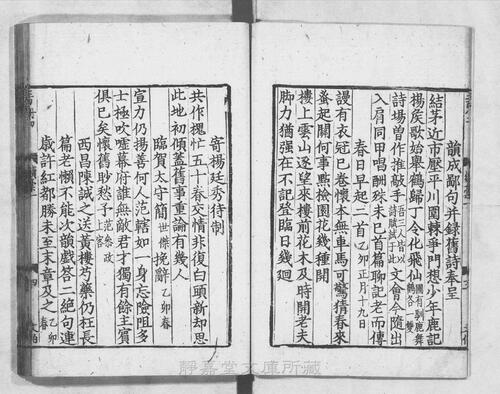 韻成鄙句并録舊詩奉呈
結茅近市壓平川園棘爭門想少年鹿記
揚矦歌始舉鶴歸丁令化飛仙園有馴鹿舞鶴各一雙
詩場曽作推敲手吾二人皆以詩賦試于此文會今隨出
入肩同甲唱酬殊未已首篇聊記老而傳
春日早起二首乙卯正月十九日
謾有衣冠已卷懐本無車馬可驚猜春來
蚤起關何事㸃檢園花幾種開
樓上雲山逐望來樓前花木及時開老夫
脚力猶强在不記登臨日幾迴
寄楊廷秀待制
共作槐忙五十春交情非復白頭新却思
此地初傾葢舊事重論有幾人
臨賀太守簡世傑挽辭乙卯春
宣力仍揚善何人范轄如一身忘險阻多
士極吹噓幕府誰無敵君才獨有餘主賓
俱已矣懐舊眇愁予范參政上宫
西昌陳誠之送黄樓芍藥仍枉長
篇老懶不能次韻戲答二絶句連
歲許紅都勝未至末章及之乙卯
四
靜嘉堂文庫所藏